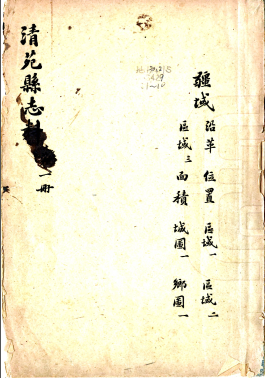 疆域 沿革 位置 區域一 區域二
區域三 面積 城圖一 鄉圖一
清苑縣志料
一冊